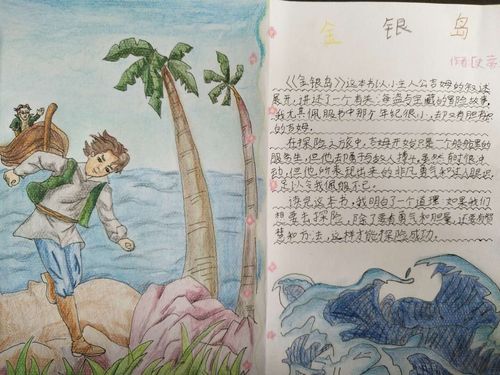 金 银 岛
《金银岛》这本书以小主人公吉姆的叙述
展开,讲述了一个有关海盗与宝藏的冒险故事,
我尤其佩服书中那个年纪很小,却又有胆有
的吉姆。
在探险之旅中,吉姆开始只是个船舱里的
服务生,但他却勇与敌人搏斗,虽然有时很冲
动,但他所表现出来的非凡勇气和过人胆识
足以令我佩服不已。
读完这本书,我明白了一个道理:如果我们
想要去探险,除了要有勇气和胆量,还要有智
慧和方法,这样才能探险成功。